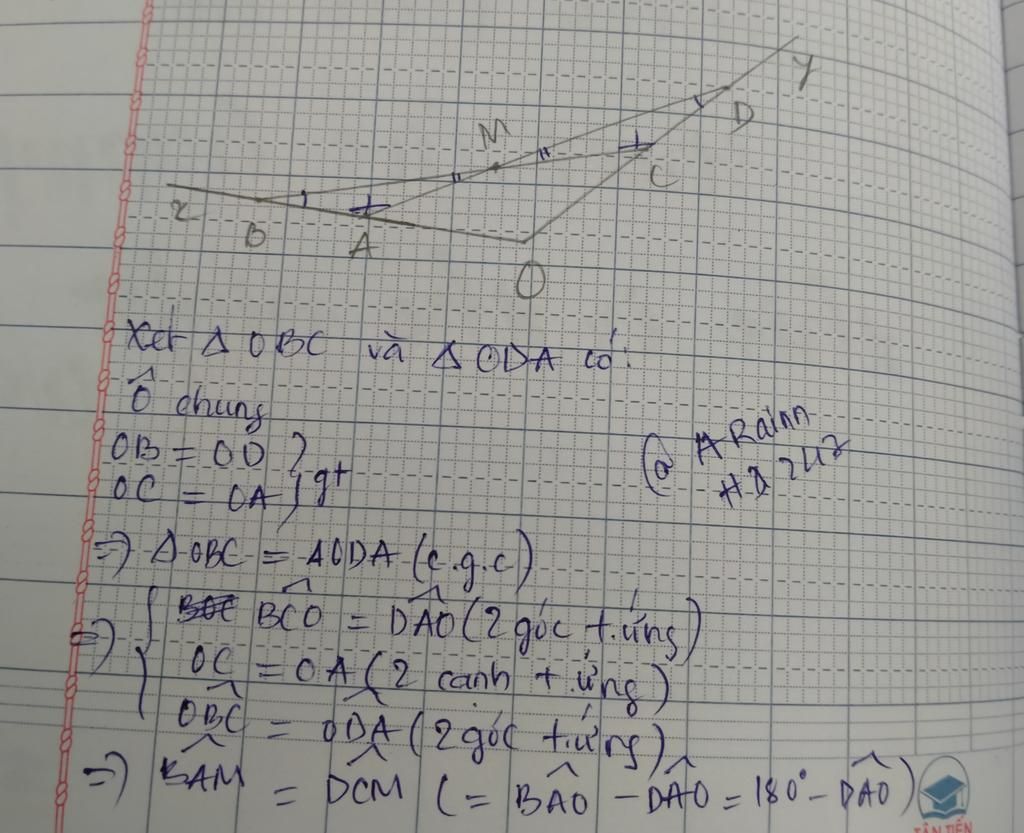 y
D
M
C
x
B
A
O
Xét Δ OBC và Δ ODA có:
Ô chung
OB = OD } gt
OC = OA
@ A Rainn
HD 247
=> Δ OBC = Δ ODA (c.g.c)
=> { BCO^ = DAO^ (2 góc t.ứng)
OC = OA (2 cạnh t.ứng)
OBC^ = ODA^ (2 góc t.ứng)
=> BAM^ = DCM^ (= BAO^ - DAO^ = 180° - DAO^)
TÂN TIẾN